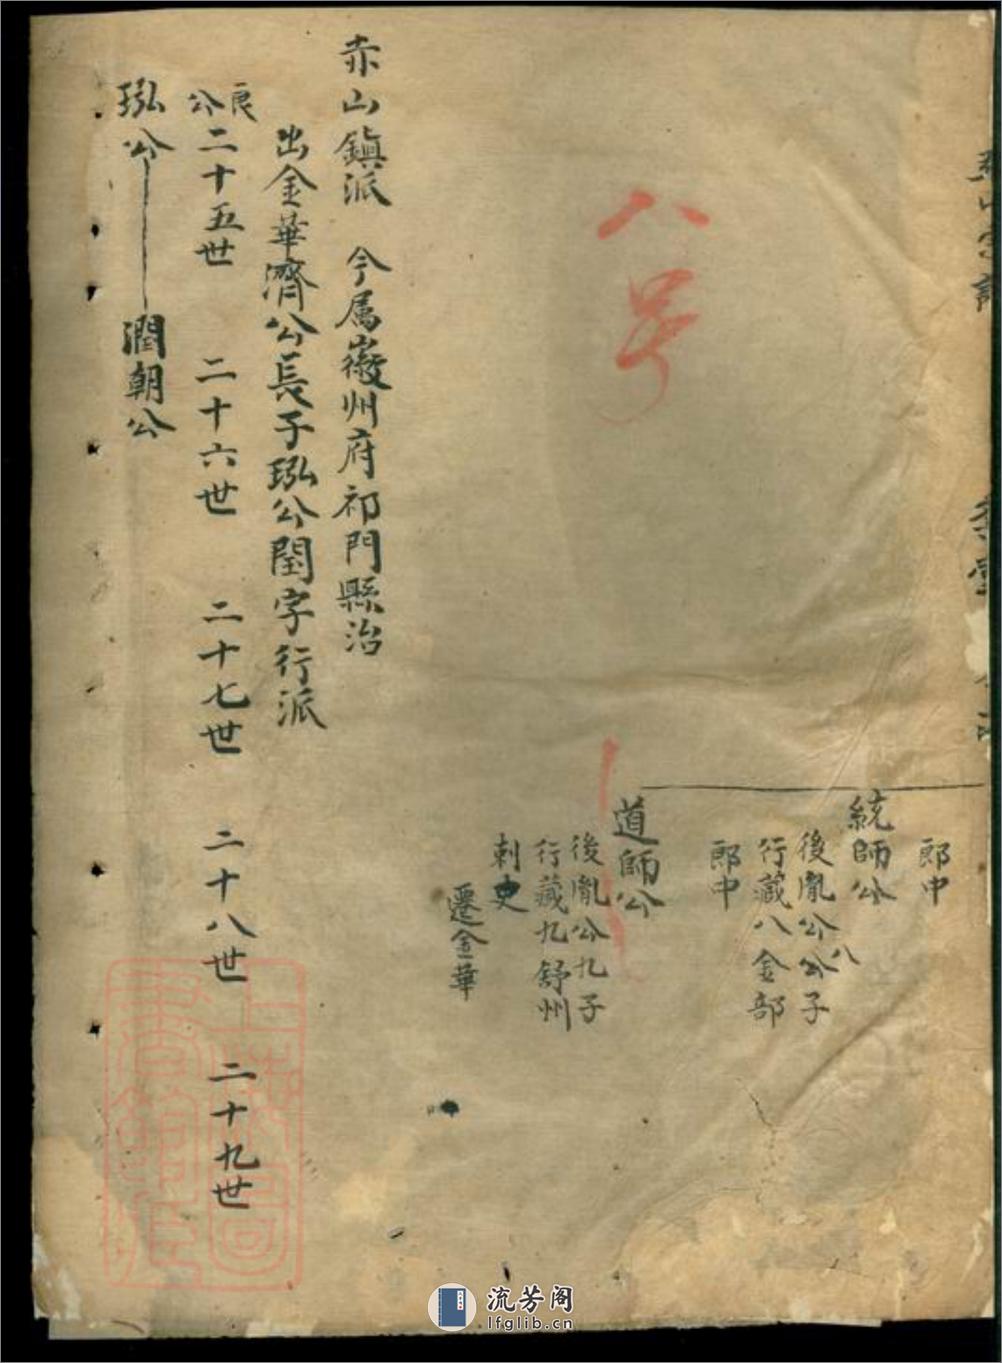 郎中
統師公
後胤公八公子
行藏八金部
郎中
道師公
後胤公九子
行藏九舒州
刺史
遷金華
八号
赤山鎮派　今属徽州府祁門縣治
出金華濟公長子瓝公閏字行派
良公二十五世　二十六世　二十七世　二十八世　二十九世
公　潤朝公
上海圖書館藏
流芳阁
lfglib.cn